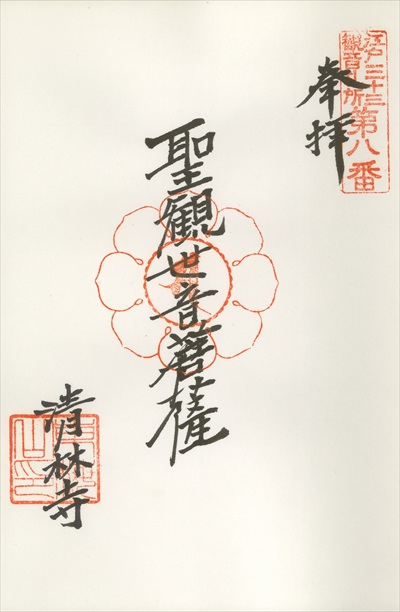 江戸三十三
観音札所
第八番
奉拝
聖観世音菩薩
清林寺